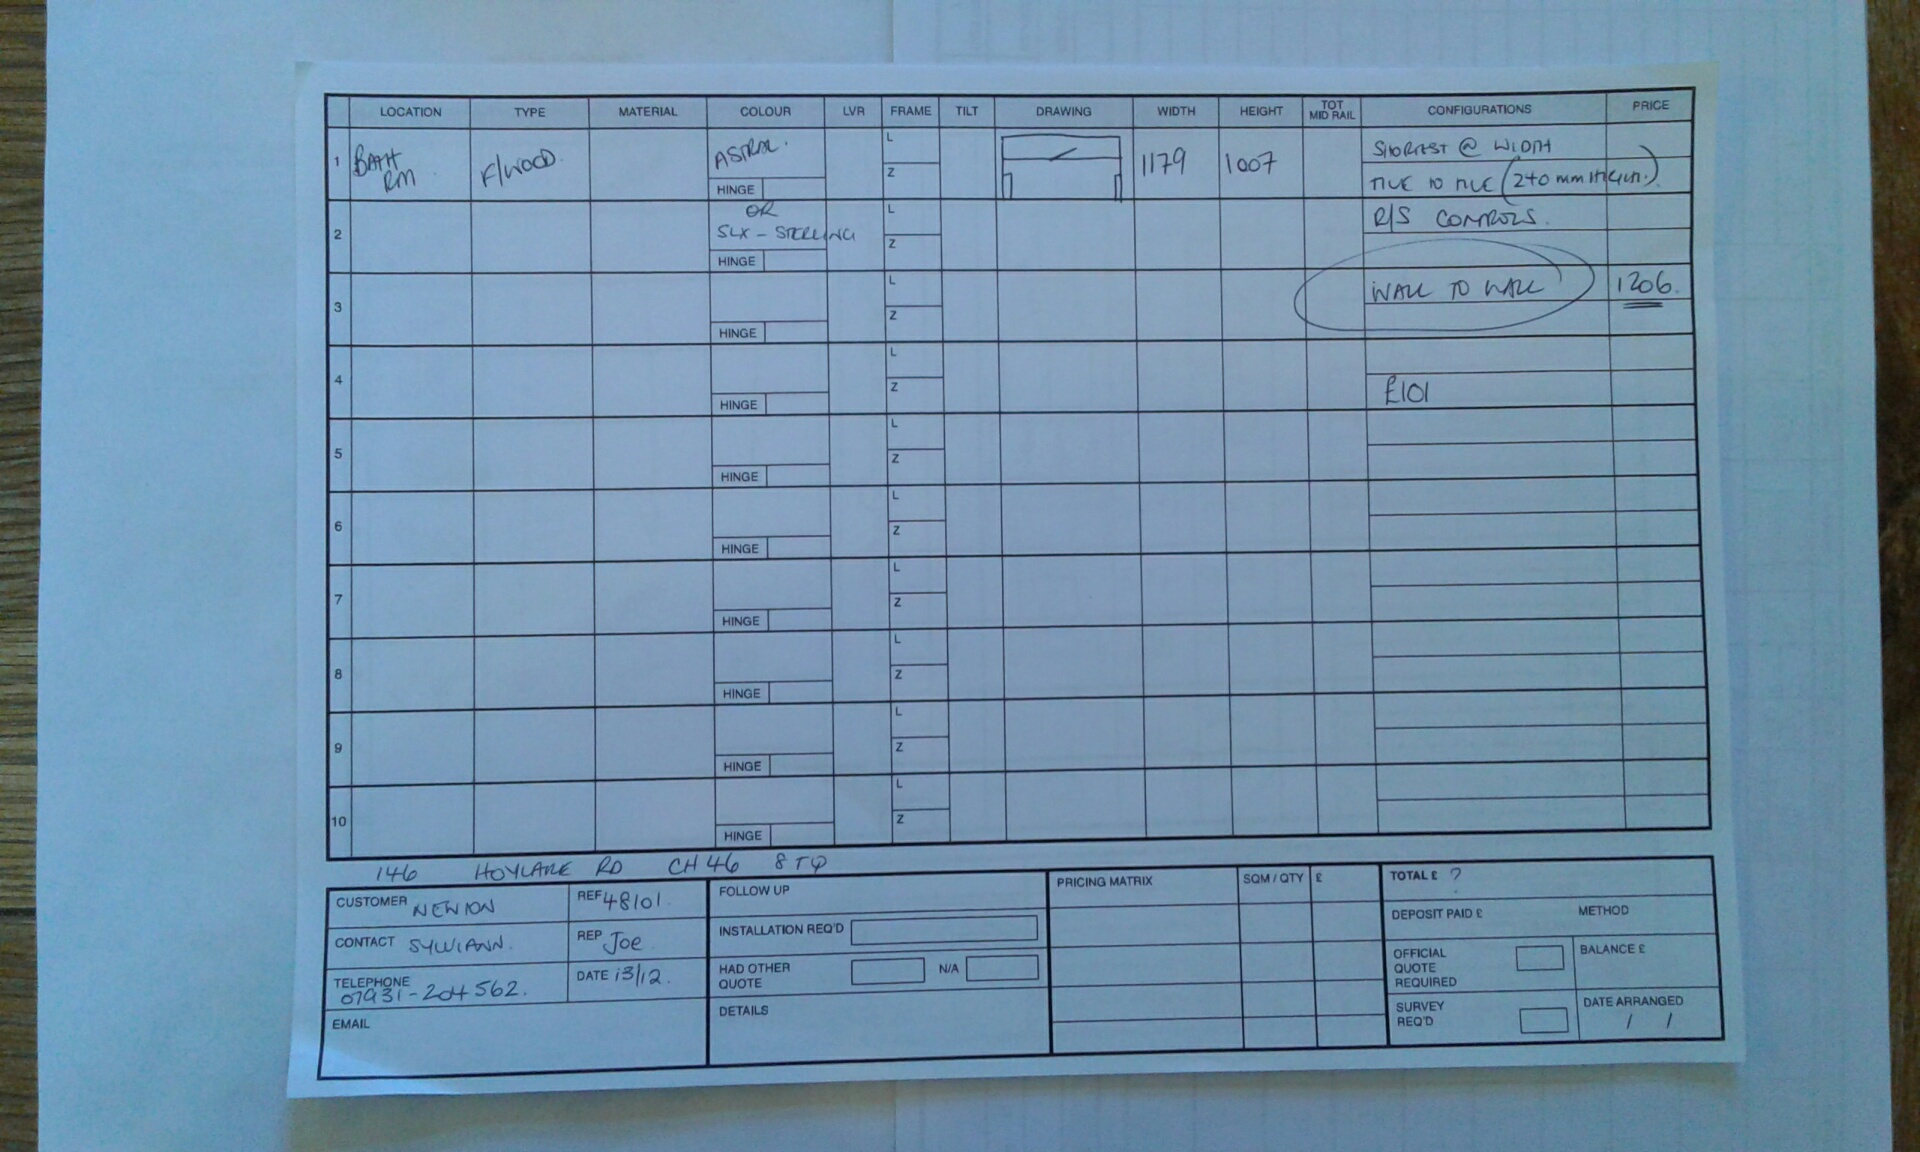 LOCATION TYPE MATERIAL COLOUR LVR FRAME TILT DRAWING WIDTH HEIGHT TOT MID RAIL CONFIGURATIONS PRICE
1 BATH RM F/WOOD. ASTRAL. HINGE L Z 1179 1007 SHORTEST @ WIDTH
TILE TO TILE (240 mm HIGH.)
2 OR SLX - STERLING HINGE L Z R/S CONTROLS.
3 HINGE L Z WALL TO WALL 1206.
4 HINGE L Z £101
5 HINGE L Z
6 HINGE L Z
7 HINGE L Z
8 HINGE L Z
9 HINGE L Z
10 HINGE L Z
146 HOYLAKE RD CH46 8TQ
CUSTOMER NEWTON REF 48101.
CONTACT SYLVIANN. REP Joe
TELEPHONE 07931-204562. DATE 13/12.
EMAIL
FOLLOW UP
INSTALLATION REQ'D
HAD OTHER QUOTE N/A
DETAILS
PRICING MATRIX SQM / QTY £
TOTAL £ ?
DEPOSIT PAID £ METHOD
OFFICIAL QUOTE REQUIRED BALANCE £
SURVEY REQ'D DATE ARRANGED
/ /